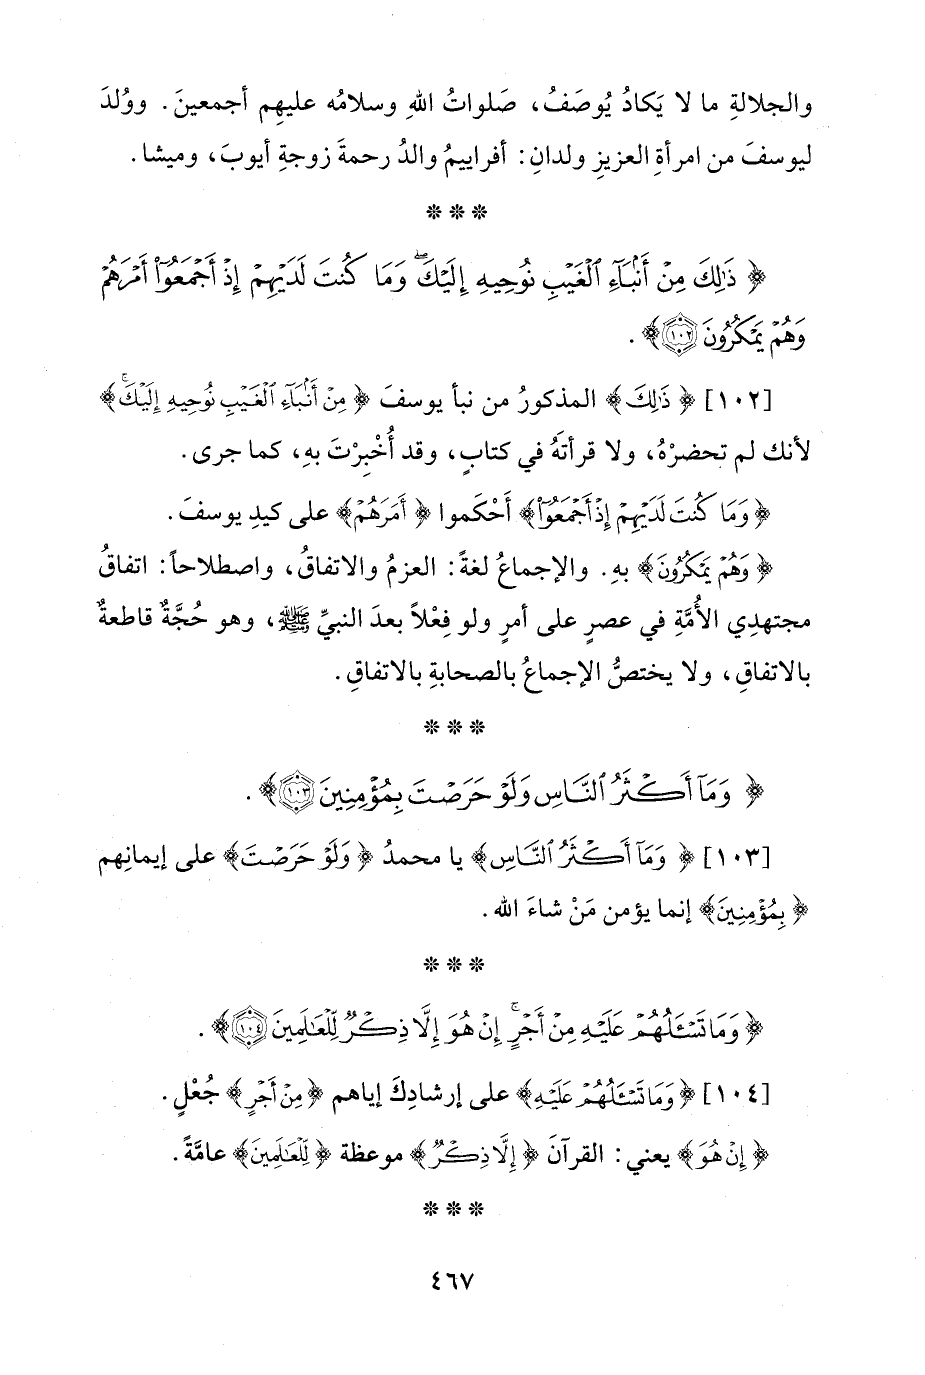 والجلالةِ ما لا يَكادُ يُوصَفُ، صَلواتُ اللهِ وسلامُه عليهِم أجمعينَ. ووُلدَ
ليوسفَ من امرأةِ العزيزِ ولدانِ: أفراييمُ والدُ رحمةَ زوجةِ أيوبَ، وميشا.
***
﴿ ذَٰلِكَ مِنْ أَنۢبَآءِ ٱلْغَيْبِ نُوحِيهِ إِلَيْكَ ۖ وَمَا كُنتَ لَدَيْهِمْ إِذْ أَجْمَعُوٓا۟ أَمْرَهُمْ
وَهُمْ يَمْكُرُونَ ١٠٢ ﴾.
[١٠٢] ﴿ ذَٰلِكَ ﴾ المذكورُ من نبأ يوسفَ ﴿ مِنْ أَنۢبَآءِ ٱلْغَيْبِ نُوحِيهِ إِلَيْكَ ۚ ﴾
لأنك لم تحضرْهُ، ولا قرأتَهُ في كتابٍ، وقد أُخْبِرْتَ بهِ، كما جرى.
﴿ وَمَا كُنتَ لَدَيْهِمْ إِذْ أَجْمَعُوٓا۟ ﴾ أَحْكَموا ﴿ أَمْرَهُمْ ﴾ على كيدِ يوسفَ.
﴿ وَهُمْ يَمْكُرُونَ ﴾ بهِ. والإجماعُ لغةً: العزمُ والاتفاقُ، واصطلاحاً: اتفاقُ
مجتهدِي الأُمَّةِ في عصرٍ على أمرٍ ولو فِعْلاً بعدَ النبيِّ ﷺ، وهو حُجَّةٌ قاطعةٌ
بالاتفاقِ، ولا يختصُّ الإجماعُ بالصحابةِ بالاتفاقِ.
***
﴿ وَمَآ أَكْثَرُ ٱلنَّاسِ وَلَوْ حَرَصْتَ بِمُؤْمِنِينَ ١٠٣ ﴾.
[١٠٣] ﴿ وَمَآ أَكْثَرُ ٱلنَّاسِ ﴾ يا محمدُ ﴿ وَلَوْ حَرَصْتَ ﴾ على إيمانِهم
﴿ بِمُؤْمِنِينَ ﴾ إنما يؤمن مَنْ شاءَ الله.
***
﴿ وَمَا تَسْـَٔلُهُمْ عَلَيْهِ مِنْ أَجْرٍ ۚ إِنْ هُوَ إِلَّا ذِكْرٌ لِّلْعَـٰلَمِينَ ١٠٤ ﴾.
[١٠٤] ﴿ وَمَا تَسْـَٔلُهُمْ عَلَيْهِ ﴾ على إرشادِكَ إياهم ﴿ مِنْ أَجْرٍ ﴾ جُعْلٍ.
﴿ إِنْ هُوَ ﴾ يعني: القرآنَ ﴿ إِلَّا ذِكْرٌ ﴾ موعظة ﴿ لِّلْعَـٰلَمِينَ ﴾ عامَّةً.
***
٤٦٧